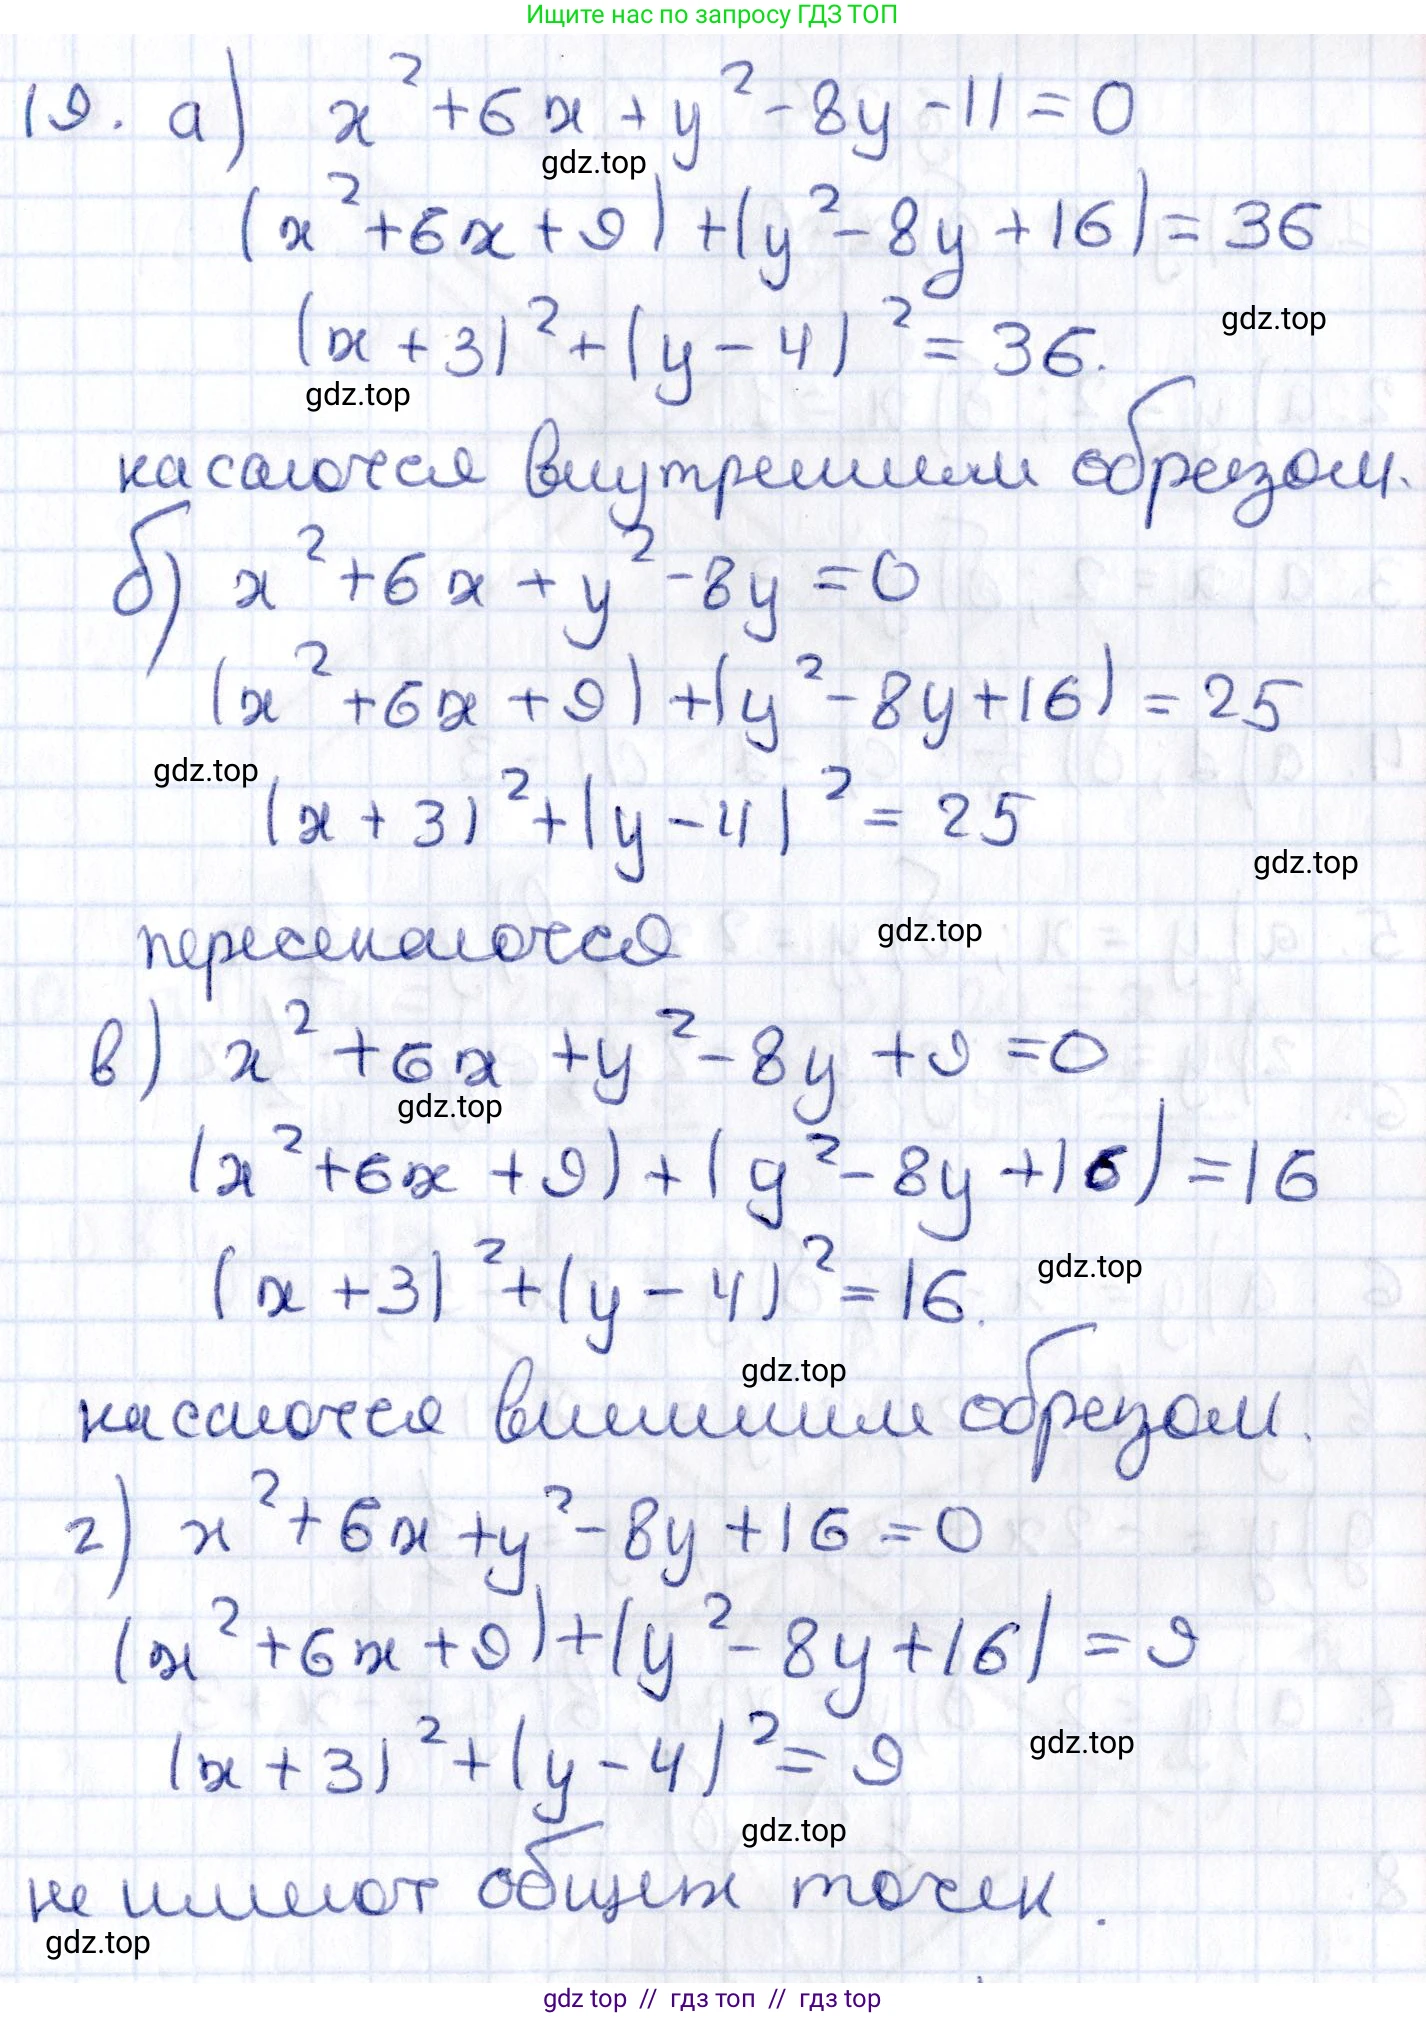 Ищите нас по запросу ГДЗ ТОП
19. а) x²+6x+y²-8y-11=0
gdz.top
(x²+6x+9)+(y²-8y+16)=36
(x+3)²+(y-4)²=36.
gdz.top
gdz.top
касаются внутренним образом.
б) x²+6x+y²-8y=0
(x²+6x+9)+(y²-8y+16)=25
gdz.top
(x+3)²+(y-4)²=25
gdz.top
пересекаются
gdz.top
в) x²+6x+y²-8y+9=0
gdz.top
(x²+6x+9)+(y²-8y+16)=16
(x+3)²+(y-4)²=16.
gdz.top
gdz.top
касаются внешним образом.
г) x²+6x+y²-8y+16=0
(x²+6x+9)+(y²-8y+16)=9
(x+3)²+(y-4)²=9
gdz.top
gdz.top
не имеют общих точек.
gdz.top
gdz top // гдз топ // гдз top